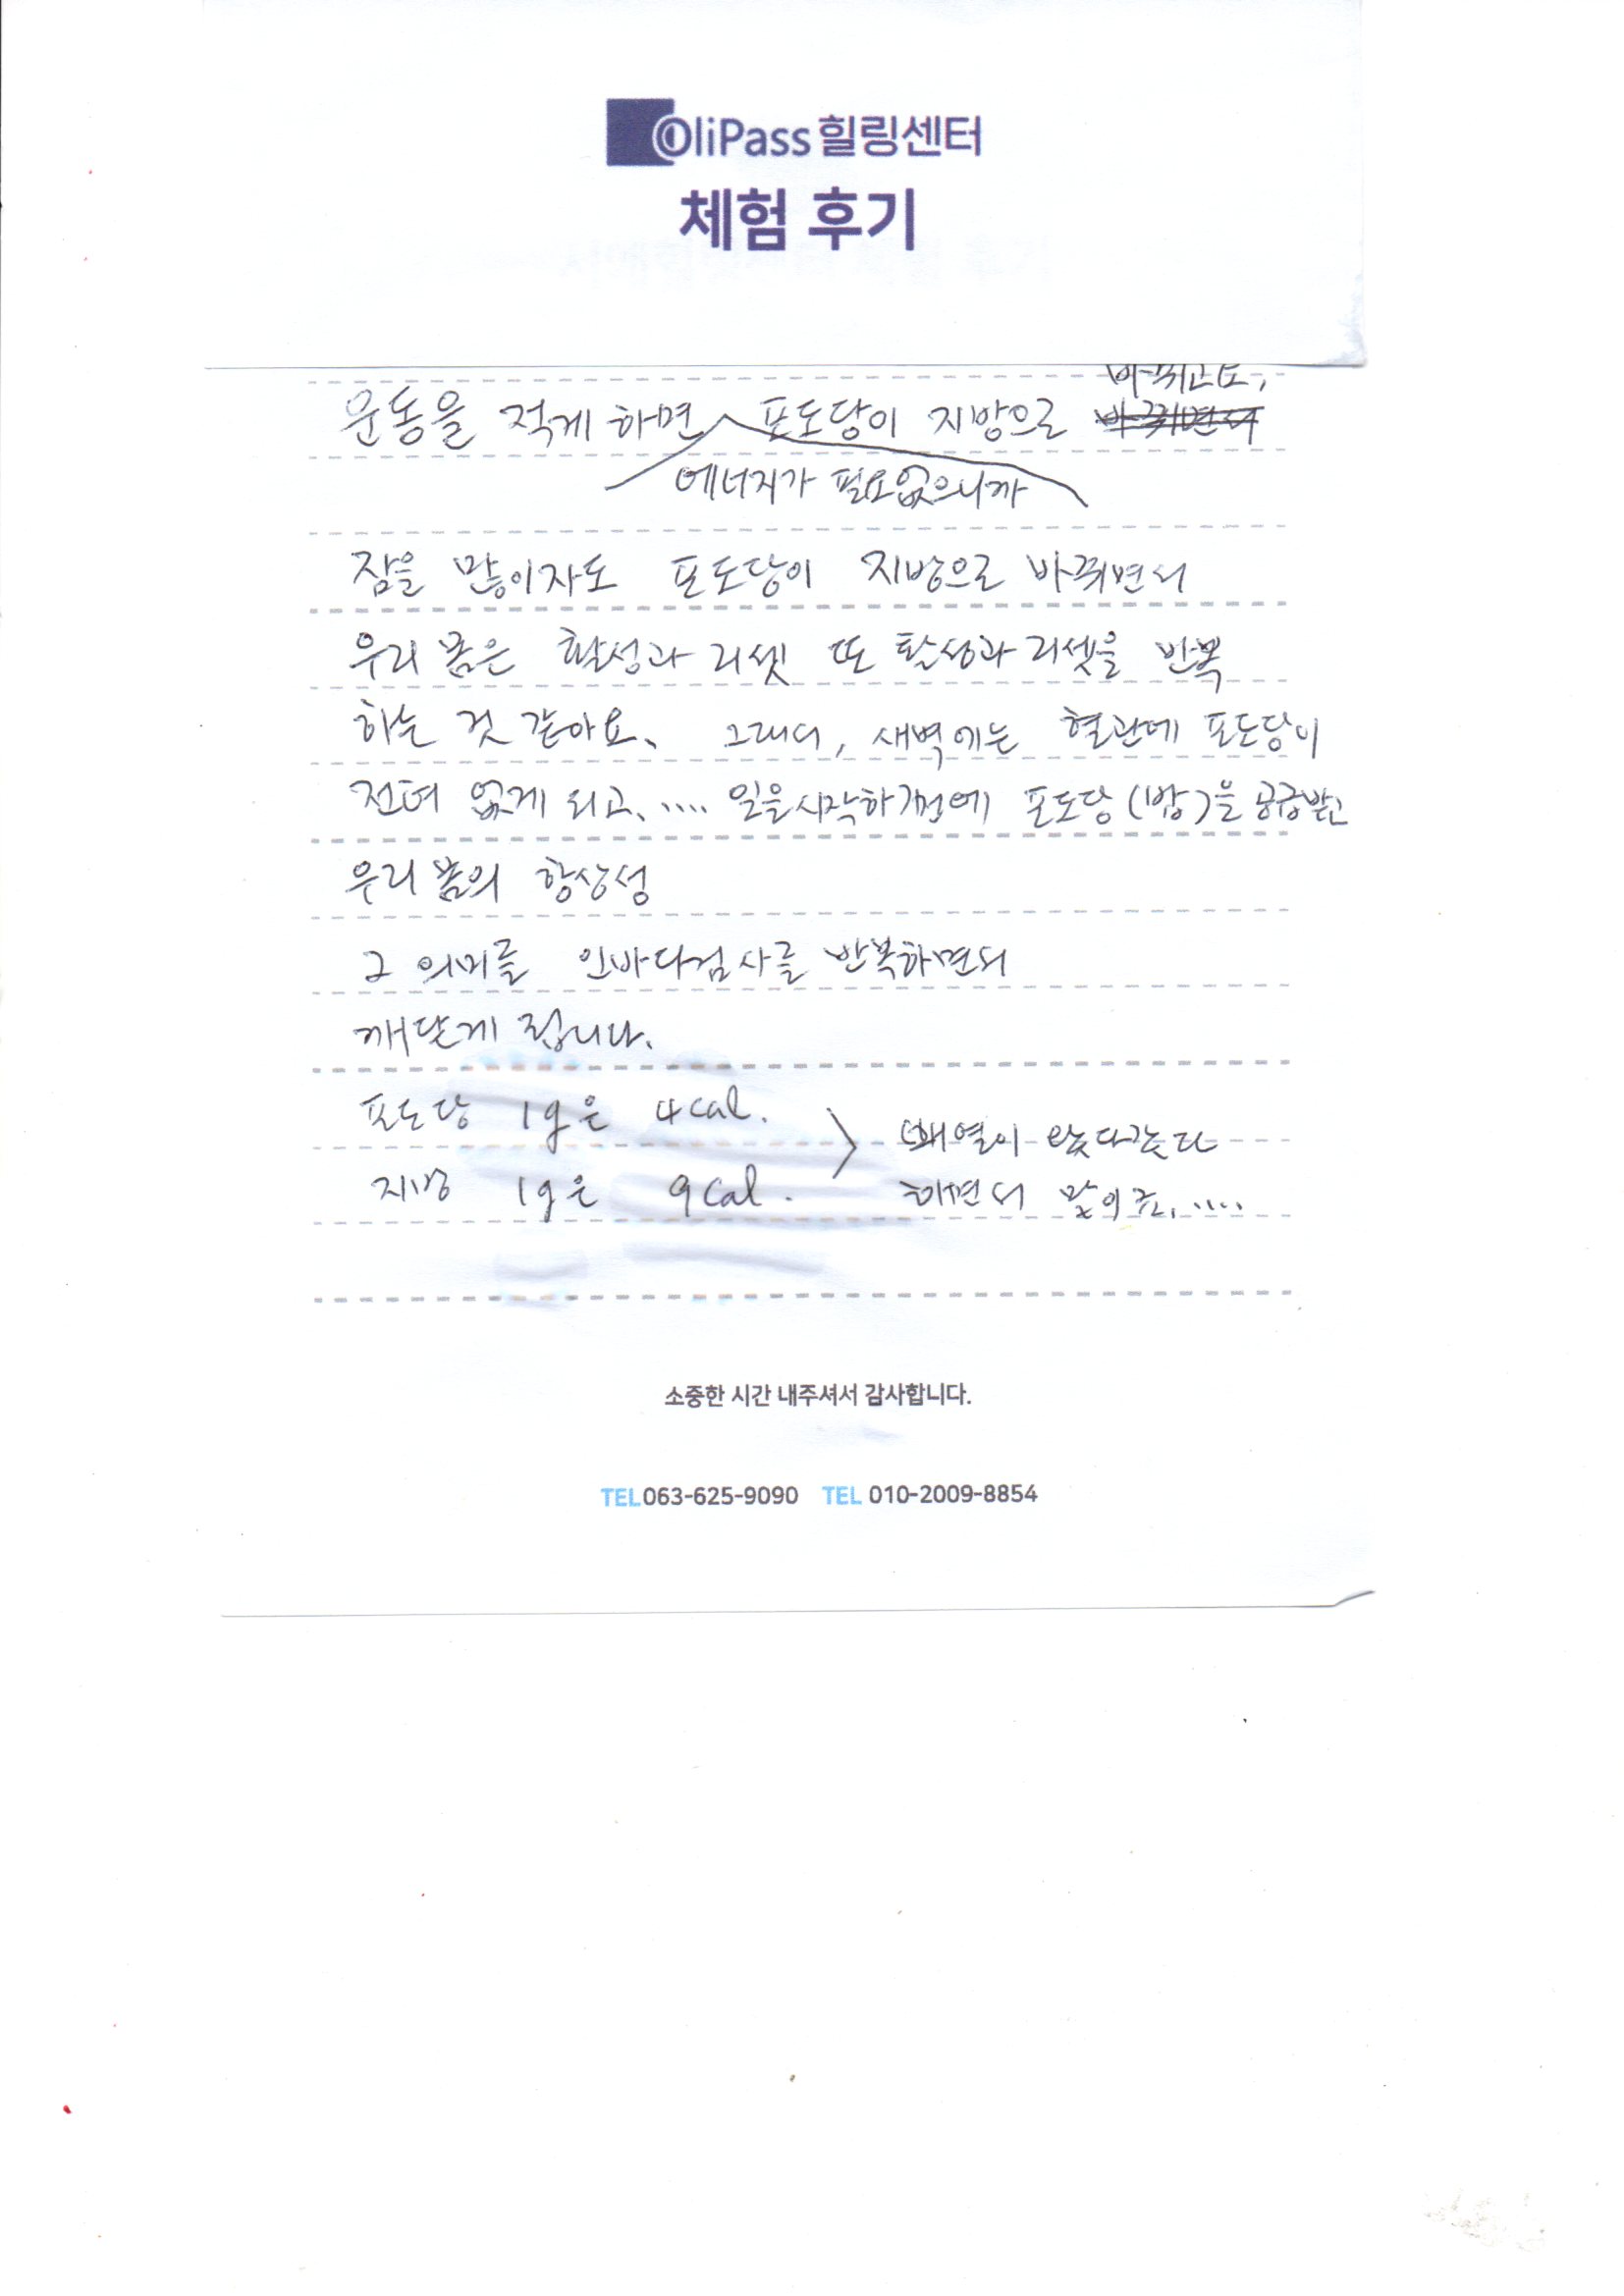 OliPass 힐링센터
체험 후기
바뀌고도,
운동을 적게 하면 포도당이 지방으로 바뀌면서
에너지가 필요없으니까
잠을 많이자도 포도당이 지방으로 바뀌면서
우리 몸은 활성과 리셋 또 활성과 리셋을 반복
하는 것 같아요. 그래서, 새벽에는 혈관에 포도당이
전혀 없게 되고, .... 일을시작하기전에 포도당(밥)을 공급받고
우리 몸의 항상성
그 의미를 인바디검사를 반복하면서
깨닫게 됩니다.
포도당 1g은 4cal.
왔다갔다
지방 1g은 9cal.
하면서 말이죠, ....
소중한 시간 내주셔서 감사합니다.
TEL 063-625-9090 TEL 010-2009-8854